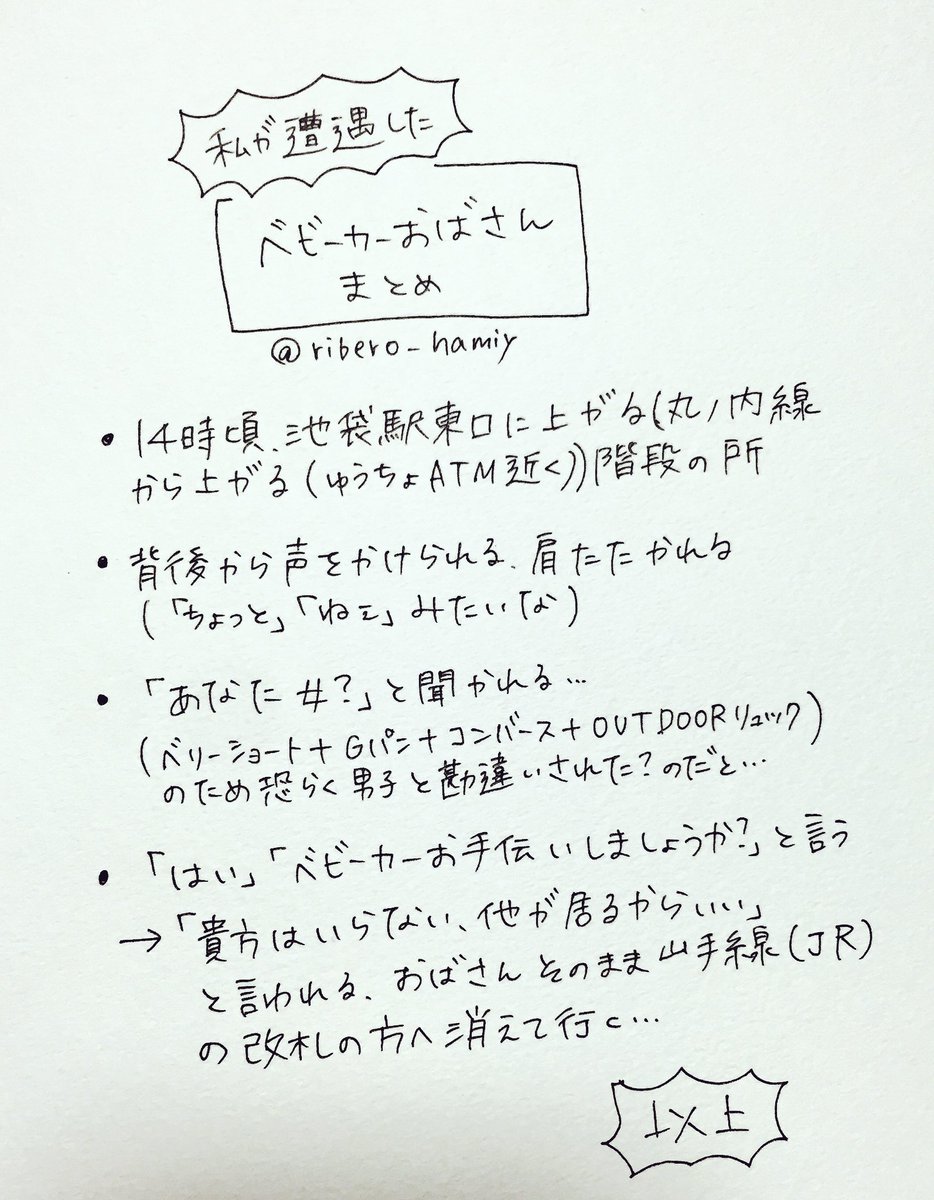 私が遭遇した
ベビーカーおばさん
まとめ
@ribero_hamiy
• 14時頃、池袋駅東口に上がる(丸ノ内線
から上がる(ゆうちょATM近く))階段の所
• 背後から声をかけられる、肩たたかれる
(「ちょっと」「ねェ」みたいな)
• 「あなた女?」と聞かれる…
(ベリーショート+Gパン+コンバース+OUTDOORリュック)
のため恐らく男子と勘違いされた?のだと…
• 「はい」「ベビーカーお手伝いしましょうか?」と言う
→「貴方はいらない、他が居るからいい」
と言われる、おばさんそのまま山手線(JR)
の改札の方へ消えて行く…
以上